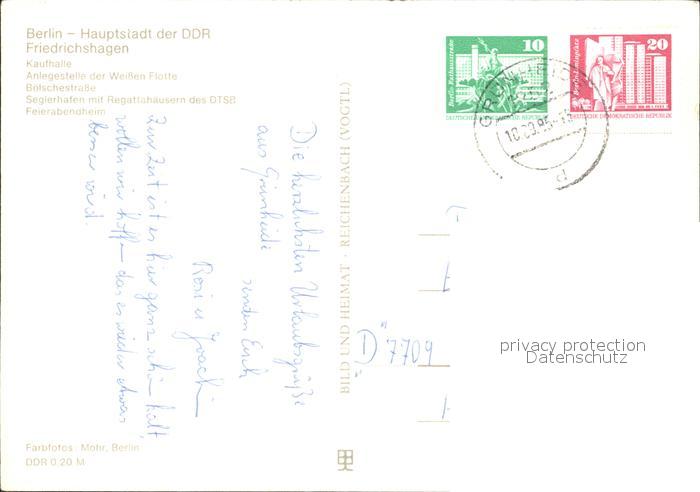 Berlin – Hauptstadt der DDR
Friedrichshagen
Kaufhalle
Anlegestelle der Weißen Flotte
Bölschestraße
Seglerhafen mit Regattahäusern des DTSB
Feierabendheim
Die herzlichsten Urlaubsgrüße
aus Grünheide
senden Euch
Rosi u Joachi
Zur Zeit ist es hier ganz schön kalt
wollen wir hoffen das es wieder etwas
besser wird.
BILD UND HEIMAT · REICHENBACH (VOGTL)
Berlin, Rathausstraße
10
DEUTSCHE DEMOKRATISCHE REPUBLIK
Berlin, Leninplatz
20
DEUTSCHE DEMOKRATISCHE REPUBLIK
GRÜNHEIDE
D 7709
privacy protection
Datenschutz
Farbfotos: Mohr, Berlin
DDR 0,20 M